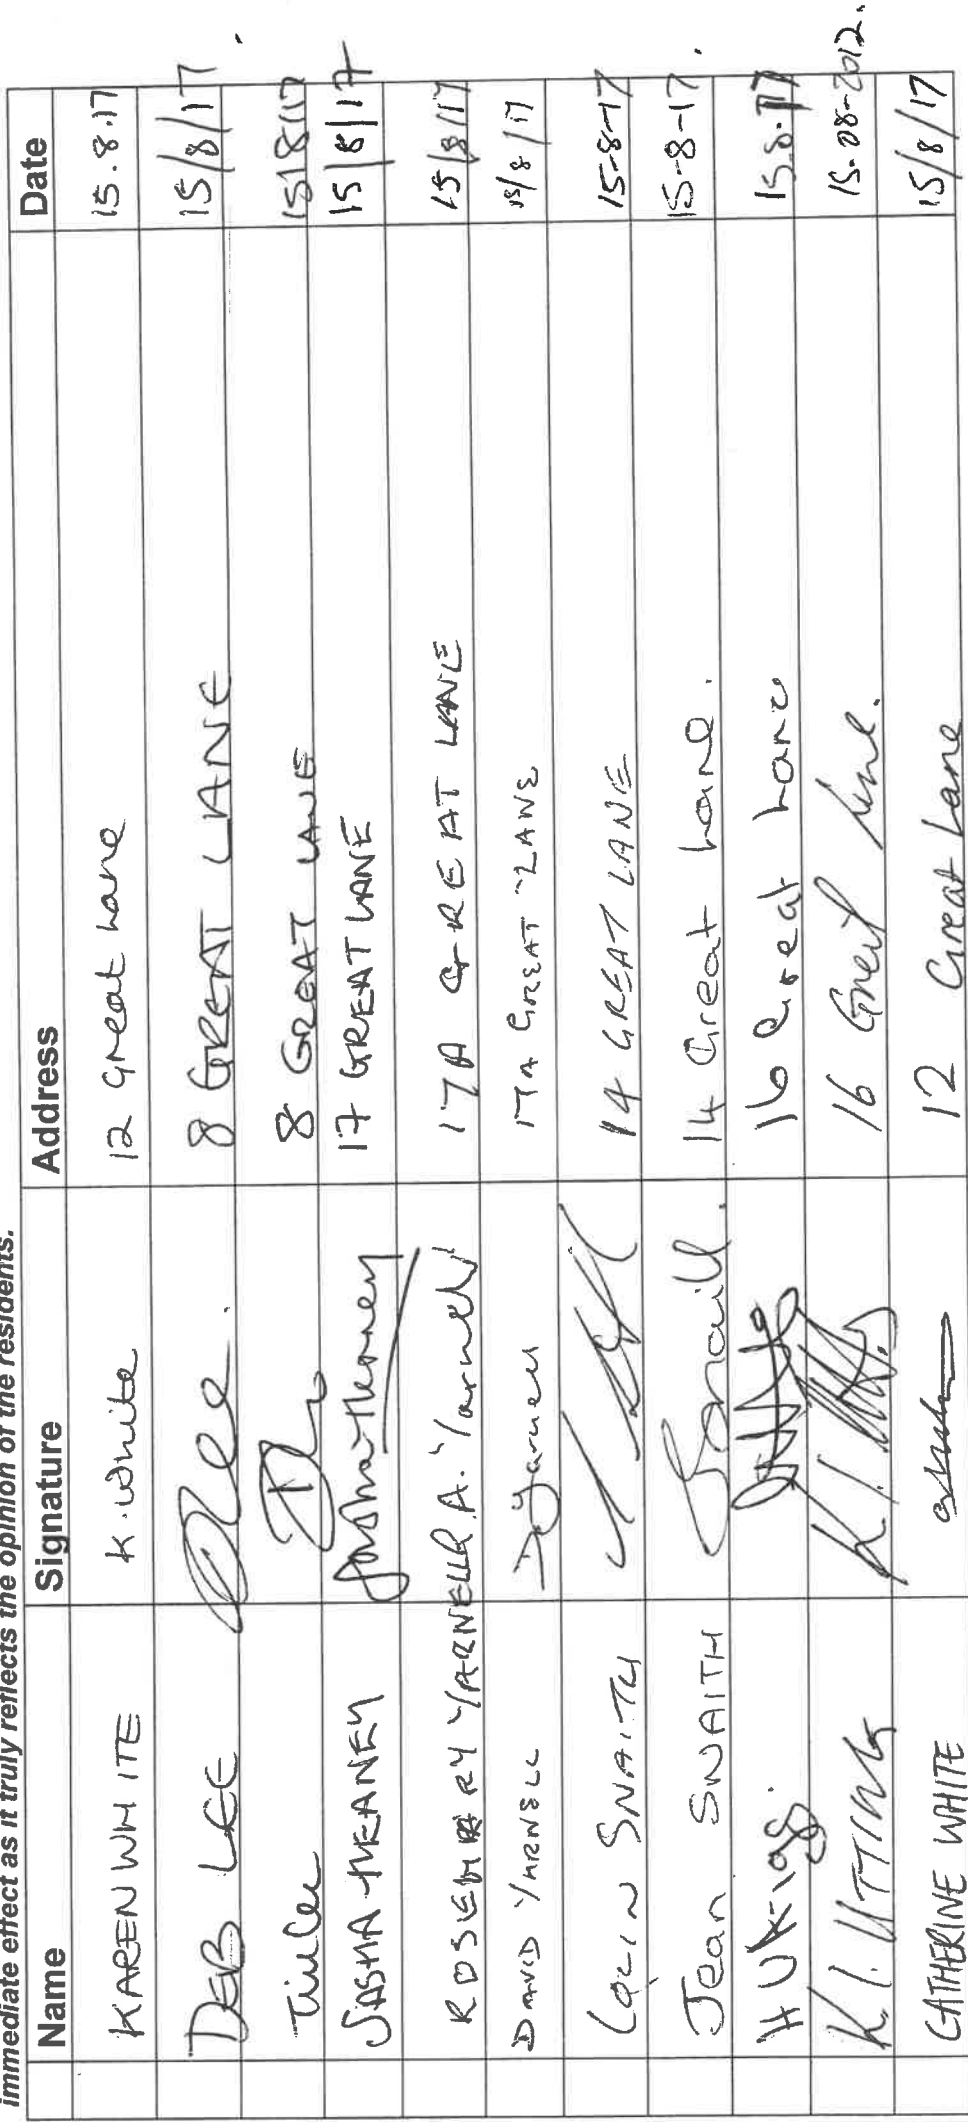 immediate effect as it truly reflects the opinion of the residents.
Name Signature Address Date
KAREN WHITE K. White 12 Great Lane 15.8.17
DEB LEE 8 GREAT LANE 15/8/17
8 GREAT LANE 15/8/17
SASHA HEANEY Sasha Heaney 17 GREAT LANE 15/8/17
ROSEMARY YARNELL R A. Yarnell 17A GREAT LANE 15/8/17
DAVID YARNELL D Yarnell 17A GREAT LANE 15/8/17
COLIN SNAITH 14 GREAT LANE 15-8-17
Jean SNAITH 14 Great Lane. 15-8-17.
16 Great Lane 15.8.17
16 Great Lane. 15-08-2012.
CATHERINE WHITE 12 Great Lane 15/8/17